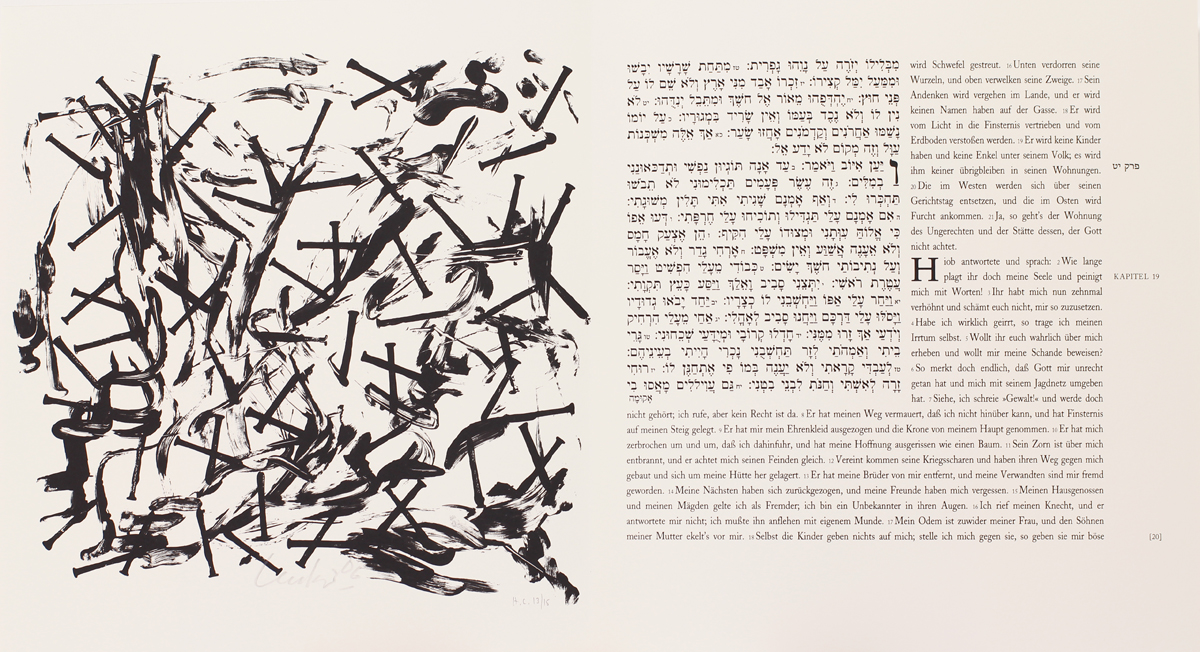 מִבְּלִי־לוֹ יְזֹרֶה עַל נָוֵהוּ גָפְרִית: טז מִתַּחַת שָׁרָשָׁיו יִבָשׁוּ
וּמִמַּעַל יִמַּל קְצִירוֹ: יז זִכְרוֹ אָבַד מִנִּי אָרֶץ וְלֹא שֵׁם לוֹ עַל
פְּנֵי חוּץ: יח יֶהְדְּפֻהוּ מֵאוֹר אֶל חֹשֶׁךְ וּמִתֵּבֵל יְנִדֻּהוּ: יט לֹא
נִין לוֹ וְלֹא נֶכֶד בְּעַמּוֹ וְאֵין שָׂרִיד בִּמְגוּרָיו: כ עַל יוֹמוֹ
נָשַׁמּוּ אַחֲרֹנִים וְקַדְמֹנִים אָחֲזוּ שָׂעַר: כא אַךְ אֵלֶּה מִשְׁכְּנוֹת
עַוָּל וְזֶה מְקוֹם לֹא יָדַע אֵל:
וַיַּעַן אִיּוֹב וַיֹּאמַר: ב עַד אָנָה תּוֹגְיוּן נַפְשִׁי וּתְדַכּאוּנַנִי
בְמִלִּים: ג זֶה עֶשֶׂר פְּעָמִים תַּכְלִימוּנִי לֹא תֵבֹשׁוּ
תַּהְכְּרוּ לִי: ד וְאַף אָמְנָם שָׁגִיתִי אִתִּי תָּלִין מְשׁוּגָתִי:
ה אִם אָמְנָם עָלַי תַּגְדִּילוּ וְתוֹכִיחוּ עָלַי חֶרְפָּתִי: ו דְּעוּ אֵפוֹ
כִּי אֱלוֹהַּ עִוְּתָנִי וּמְצוּדוֹ עָלַי הִקִּיף: ז הֵן אֶצְעַק חָמָס
וְלֹא אֵעָנֶה אֲשַׁוַּע וְאֵין מִשְׁפָּט: ח אָרְחִי גָדַר וְלֹא אֶעֱבוֹר
וְעַל נְתִיבוֹתַי חֹשֶׁךְ יָשִׂים: ט כְּבוֹדִי מֵעָלַי הִפְשִׁיט וַיָּסַר
עֲטֶרֶת רֹאשִׁי: י יִתְּצֵנִי סָבִיב וָאֵלַךְ וַיַּסַּע כָּעֵץ תִּקְוָתִי:
יא וַיַּחַר עָלַי אַפּוֹ וַיַּחְשְׁבֵנִי לוֹ כְצָרָיו: יב יַחַד יָבֹאוּ גְדוּדָיו
וַיָּסֹלּוּ עָלַי דַּרְכָּם וַיַּחֲנוּ סָבִיב לְאָהֳלִי: יג אַחַי מֵעָלַי הִרְחִיק
וְיֹדְעַי אַךְ זָרוּ מִמֶּנִּי: יד חָדְלוּ קְרוֹבָי וּמְיֻדָּעַי שְׁכֵחוּנִי: טו גָּרֵי
בֵיתִי וְאַמְהֹתַי לְזָר תַּחְשְׁבֻנִי נָכְרִי הָיִיתִי בְעֵינֵיהֶם:
טז לְעַבְדִּי קָרָאתִי וְלֹא יַעֲנֶה בְּמוֹ פִי אֶתְחַנֶּן לוֹ: יז רוּחִי
זָרָה לְאִשְׁתִּי וְחַנֹּתִי לִבְנֵי בִטְנִי: יח גַּם עֲוִילִים מָאֲסוּ בִי
אָקוּמָה
wird Schwefel gestreut. 16 Unten verdorren seine
Wurzeln, und oben verwelken seine Zweige. 17 Sein
Andenken wird vergehen im Lande, und er wird
keinen Namen haben auf der Gasse. 18 Er wird
vom Licht in die Finsternis vertrieben und vom
Erdboden verstoßen werden. 19 Er wird keine Kinder
haben und keine Enkel unter seinem Volk; es wird
ihm keiner übrigbleiben in seinen Wohnungen.
20 Die im Westen werden sich über seinen
Gerichtstag entsetzen, und die im Osten wird
Furcht ankommen. 21 Ja, so geht's der Wohnung
des Ungerechten und der Stätte dessen, der Gott
nicht achtet.
Hiob antwortete und sprach: 2 Wie lange
plagt ihr doch meine Seele und peinigt
mich mit Worten! 3 Ihr habt mich nun zehnmal
verhöhnt und schämt euch nicht, mir so zuzusetzen.
4 Habe ich wirklich geirrt, so trage ich meinen
Irrtum selbst. 5 Wollt ihr euch wahrlich über mich
erheben und wollt mir meine Schande beweisen?
6 So merkt doch endlich, daß Gott mir unrecht
getan hat und mich mit seinem Jagdnetz umgeben
hat. 7 Siehe, ich schreie »Gewalt!« und werde doch
nicht gehört; ich rufe, aber kein Recht ist da. 8 Er hat meinen Weg vermauert, daß ich nicht hinüber kann, und hat Finsternis
auf meinen Steig gelegt. 9 Er hat mir mein Ehrenkleid ausgezogen und die Krone von meinem Haupt genommen. 10 Er hat mich
zerbrochen um und um, daß ich dahinfuhr, und hat meine Hoffnung ausgerissen wie einen Baum. 11 Sein Zorn ist über mich
entbrannt, und er achtet mich seinen Feinden gleich. 12 Vereint kommen seine Kriegsscharen und haben ihren Weg gegen mich
gebaut und sich um meine Hütte her gelagert. 13 Er hat meine Brüder von mir entfernt, und meine Verwandten sind mir fremd
geworden. 14 Meine Nächsten haben sich zurückgezogen, und meine Freunde haben mich vergessen. 15 Meinen Hausgenossen
und meinen Mägden gelte ich als Fremder; ich bin ein Unbekannter in ihren Augen. 16 Ich rief meinen Knecht, und er
antwortete mir nicht; ich mußte ihn anflehen mit eigenem Munde. 17 Mein Odem ist zuwider meiner Frau, und den Söhnen
meiner Mutter ekelt's vor mir. 18 Selbst die Kinder geben nichts auf mich; stelle ich mich gegen sie, so geben sie mir böse
פרק יט
KAPITEL 19
[20]